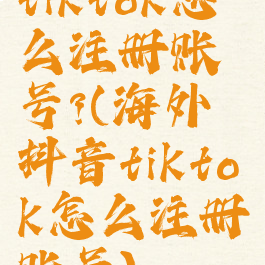 tiktok怎
么注册账
号?(海外
抖音tikto
k怎么注册
账号)